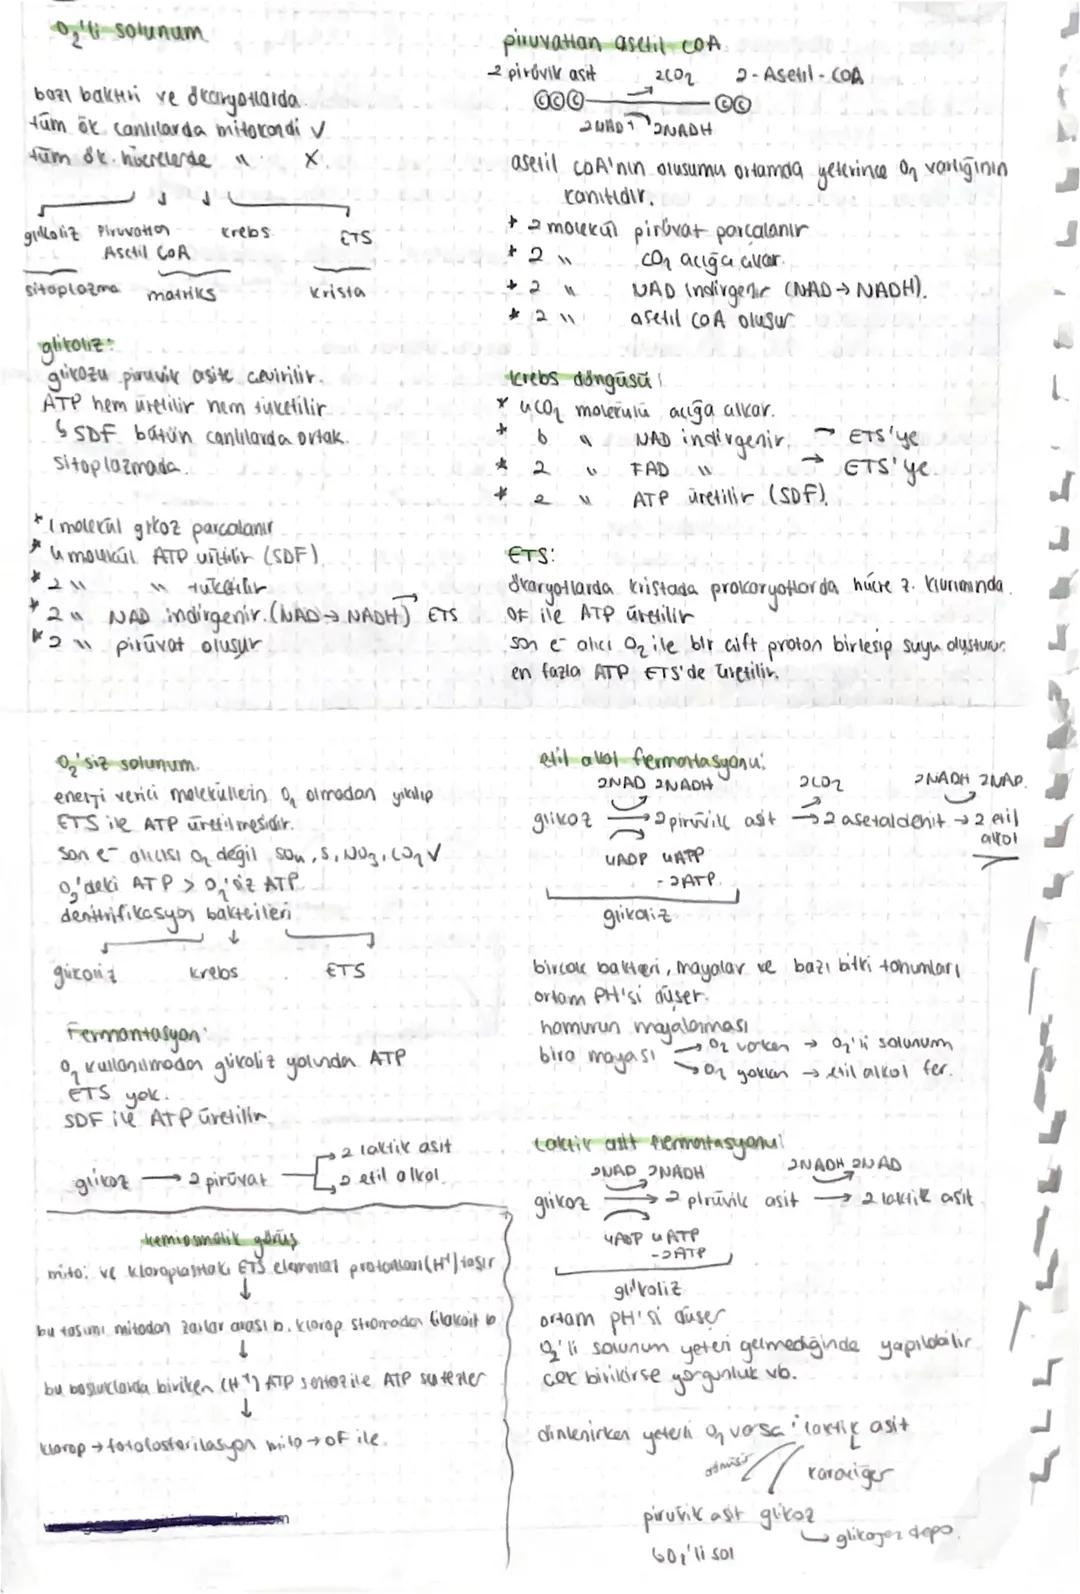 O₂'li solunum
bazı bakteri ve ökaryotlarda.
tüm ök. canlılarda mitokondi √
tüm ök. hücrelerde " X.
glikoliz Piruvattan Asetil CoA krebs ETS
sitoplazma matriks krista
glikoliz:
glikozu piruvik asite çevirilir.
ATP hem üretilir hem tüketilir
↳ SDF bütün canlılarda ortak.
sitoplazmada.
* 1 molekül glikoz parçalanır
* 4 molekül ATP üretilir (SDF)
* 2 " " tüketilir
* 2 " NAD indirgenir. (NAD → NADH) → ETS
* 2 " pirüvat oluşur
piruvattan asetil COA
2 pirüvik asit 2CO₂ 2-Asetil-COA
ⒸⒸⒸ ⒸⒸ
2NAD⁺ 2NADH
asetil COA'nın oluşumu ortamda yeterince O₂ varlığının
kanıtıdır.
* 2 molekül pirüvat parçalanır
* 2 " CO₂ açığa çıkar.
* 2 " NAD indirgenir (NAD → NADH).
* 2 " asetil COA oluşur
krebs döngüsü:
* 4CO₂ molekülü açığa çıkar.
* 6 " NAD indirgenir. → ETS'ye
* 2 " FAD " → ETS'ye
* 2 " ATP üretilir (SDF).
ETS:
ökaryotlarda kristada prokaryotlarda hücre z. kıvrımında.
OF ile ATP üretilir
son e⁻ alıcı O₂ ile bir çift proton birleşip suyu oluşturur.
en fazla ATP ETS'de üretilir.
O₂'siz solunum.
enerji verici moleküllerin O₂ olmadan yıkılıp
ETS ile ATP üretilmesidir.
son e⁻ alıcısı O₂ değil SO₄, S, NO₃, CO₂ √
O₂'deki ATP > O₂'siz ATP
denitrifikasyon bakteileri
glikoliz krebs ETS
Fermantasyon:
O₂ kullanılmadan glikoliz yolunda ATP
ETS yok.
SDF ile ATP üretilir.
glikoz → 2 pirüvat → 2 laktik asit
→ 2 etil alkol.
kemiosmotik görüş
mito. ve kloroplasttaki ETS elemanları protonları (H⁺) taşır
↓
bu taşımı mitodan zarlar arası b. klorop stromadan tilakoit b
↓
bu boşluklarda biriken (H⁺) ATP sentaz ile ATP sentezler
↓
klorop → fotofosforilasyon mito → OF ile.
etil alkol fermantasyonu:
2NAD 2NADH 2CO₂ 2NADH 2NAD.
glikoz → 2 pirüvik asit → 2 asetaldehit → 2 etil
alkol
4ADP 4ATP
-2ATP
glikoliz
birçok bakteri, mayalar ve bazı bitki tohumları
ortam PH'si düşer.
hamurun mayalanması
bira mayası → O₂ varken → O₂'li solunum
→ O₂ yokken → etil alkol fer.
Laktik asit fermantasyonu:
2NAD 2NADH 2NADH 2NAD
glikoz → 2 pirüvik asit → 2 laktik asit
4ADP 4ATP
-2ATP
glikoliz
ortam pH'si düşer
O₂'li solunum yeteri gelmediğinde yapılabilir
çok birikirse yorgunluk vb.
dinlenirken yeterli O₂ varsa: laktik asit
karaciğer
piruvik asit glikoz
↳ glikojen depo.
↳ O₂'li sol